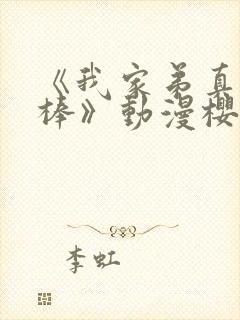 《我家弟真
棒》動漫櫻
李虹